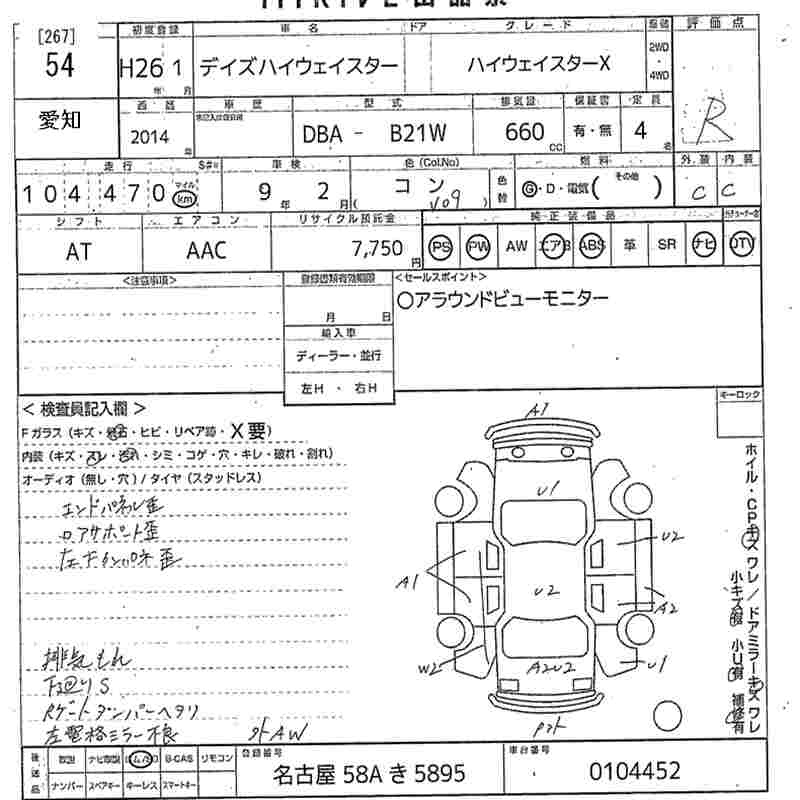 [267]
54
愛知
初度登録
車名
ドア
グレード
装備
評価点
H26 1
年 月
デイズハイウェイスター
ハイウェイスターX
2WD
・
4WD
R
西暦
車歴
型式
排気量
保証書
定員
2014
年
DBA - B21W
660
CC
有・無
4
名
走行
S#
車検
色(Col.No)
燃料
外装
内装
104470
マイル
km
9年 2月
コン
V09
色替
G・D・電気( その他 )
C
C
シフト
エアコン
リサイクル預託金
純正装備品
AT
AAC
7,750円
PS PW AW エアB ABS 革 SR ナビ DTV
<注意事項>
登録書類有効期限
月 日
輸入車
ディーラー・並行
左H ・ 右H
<セールスポイント>
○アラウンドビューモニター
<検査員記入欄>
Fガラス(キズ・飛石・ヒビ・リペア跡・X要)
内装(キズ・スレ・汚れ・シミ・コゲ・穴・キレ・破れ・割れ)
オーディオ(無し・穴)/タイヤ(スタッドレス)
エンドパネル歪
コアサポート歪
排気もれ
Rゲートダンパーヘタリ
左電格ミラー不良
外AW
キーロック
A1
U1
U2
A1
U2
A2
W2
A2U2
U1
ホイル・CPキズワレ/ドアミラーキズワレ
小キズ有 小U有 補修有
後送品
取説
ナビ取説
B-CAS
リモコン
ナンバー
スペアキー
キーレス
スマートキー
登録番号
名古屋 58A き 5895
車台番号
0104452